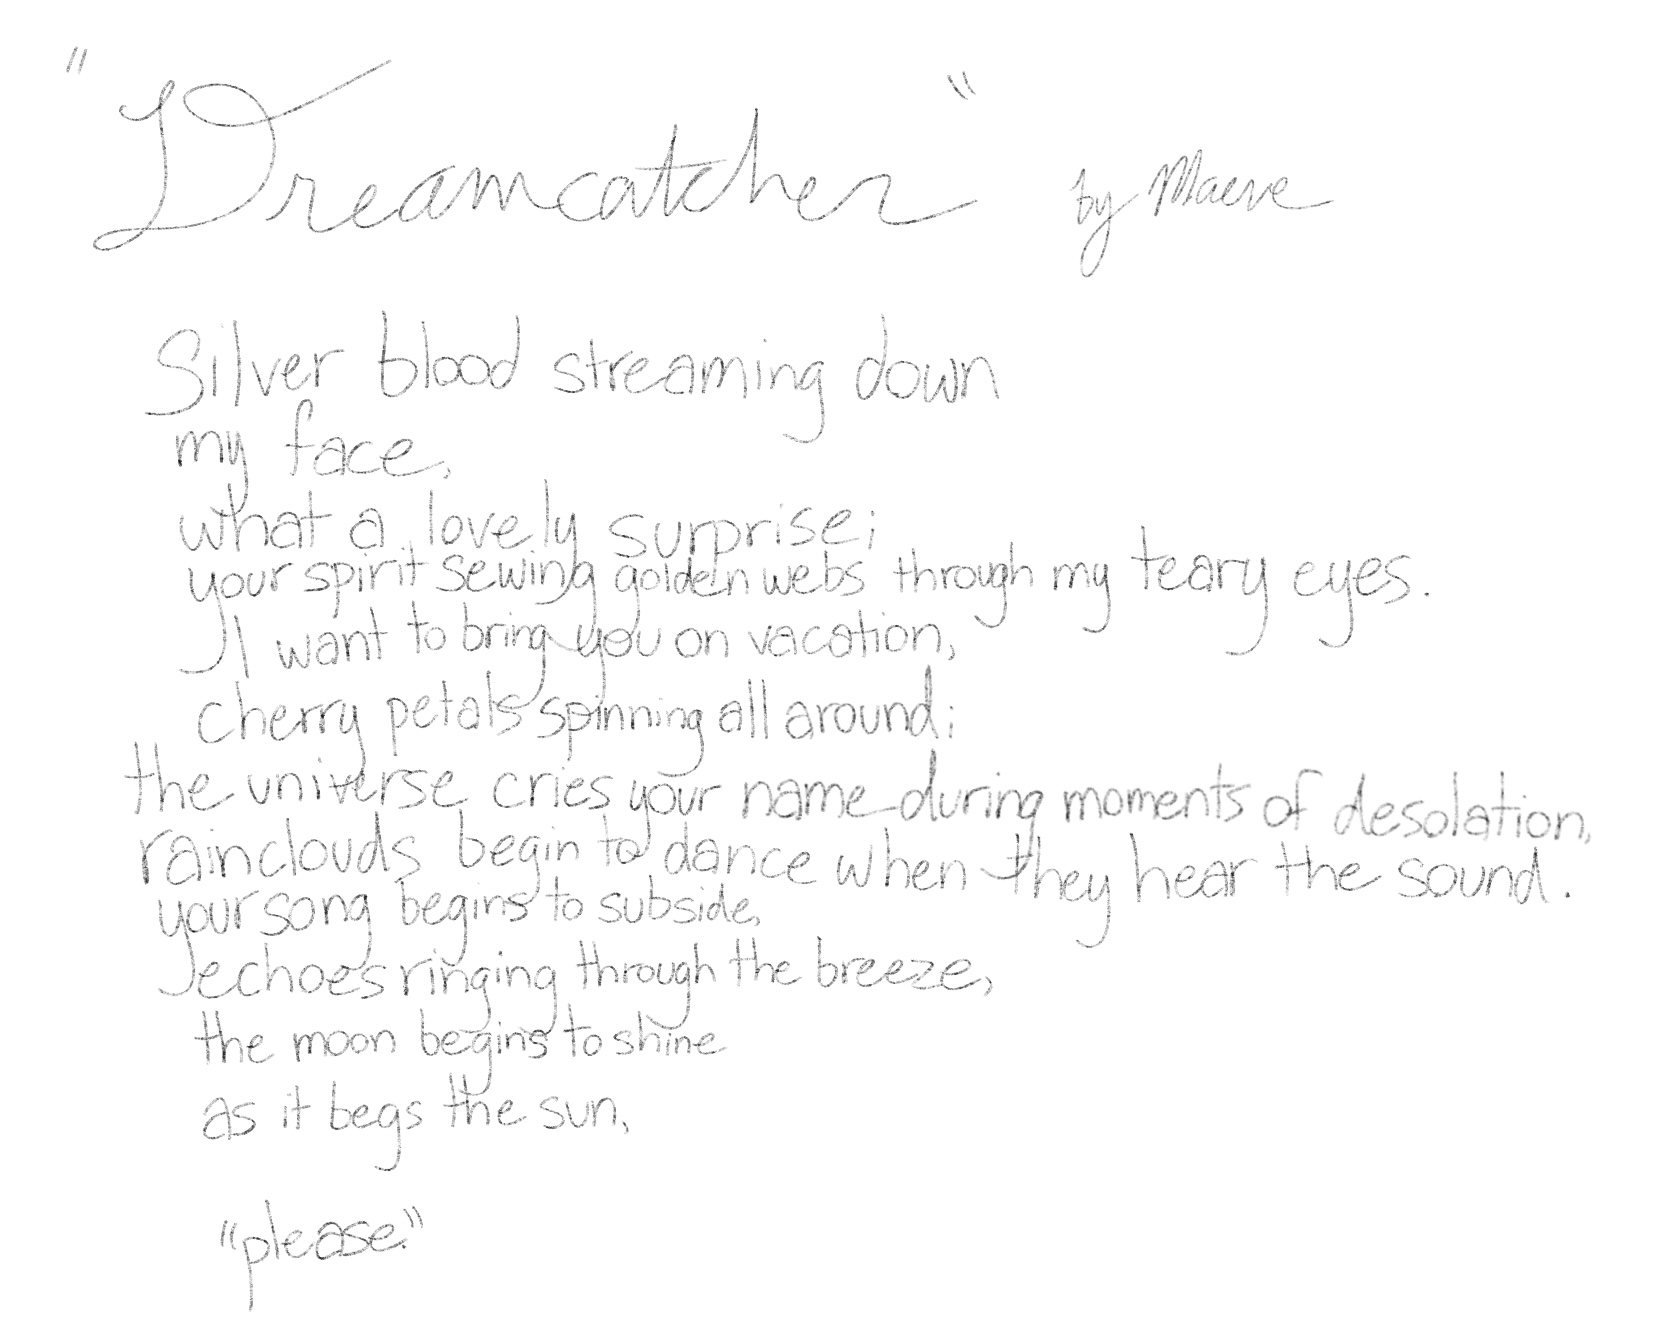 "Dreamcatcher" by Maeve
Silver blood streaming down
my face,
what a lovely surprise;
your spirit sewing golden webs through my teary eyes.
I want to bring you on vacation,
cherry petals spinning all around;
the universe cries your name during moments of desolation,
rainclouds begin to dance when they hear the sound.
your song begins to subside,
echoes ringing through the breeze,
the moon begins to shine
as it begs the sun,
"please."